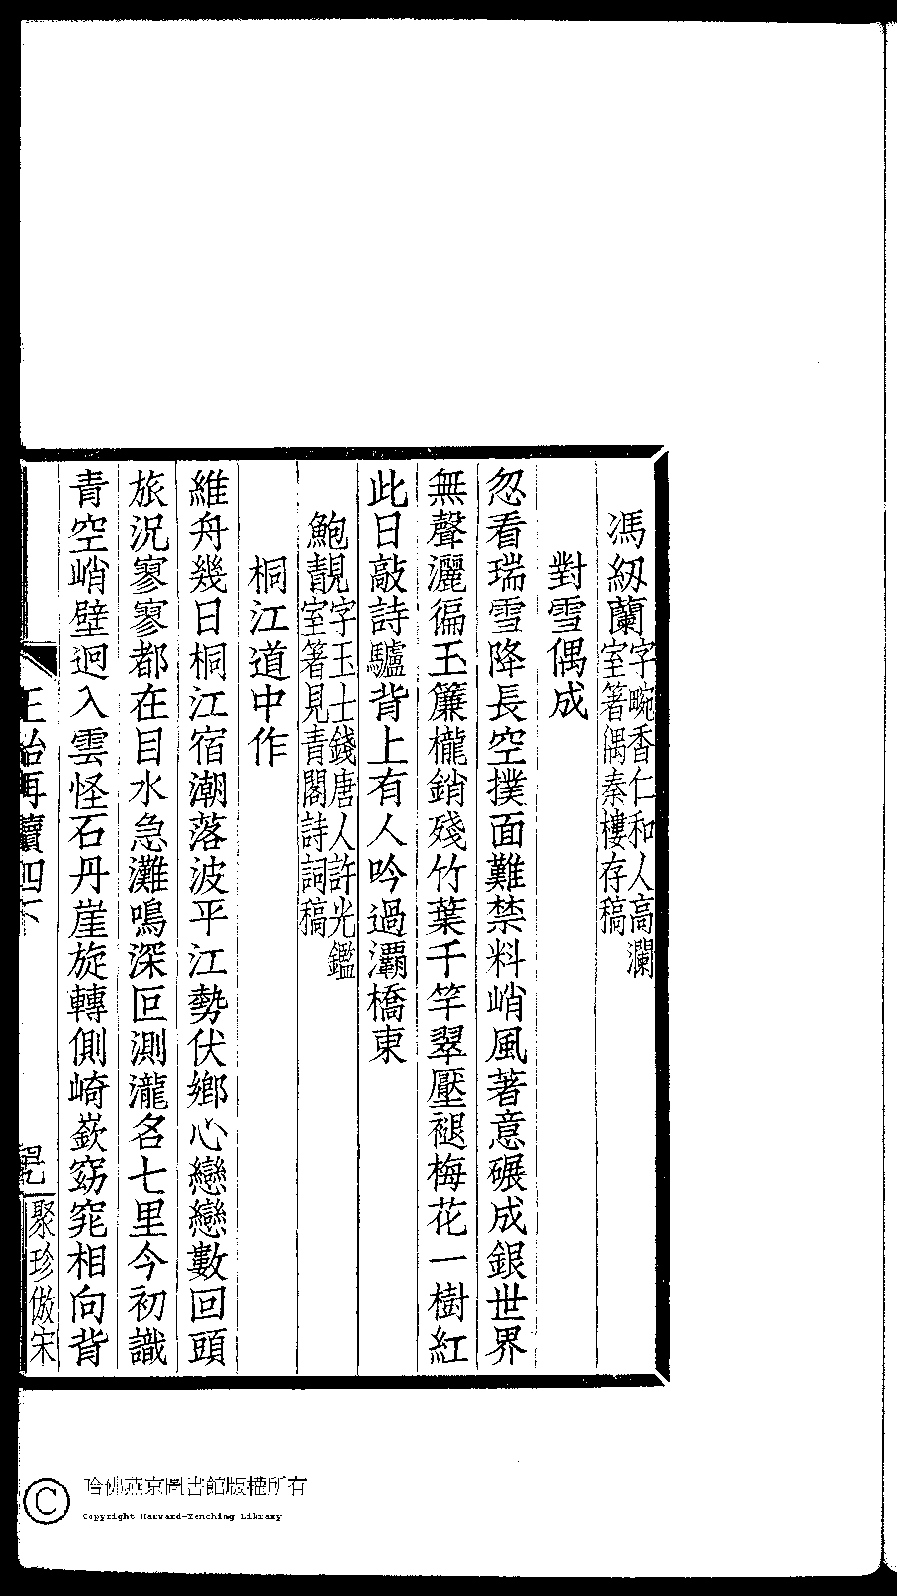 馮紉蘭字畹香仁和人高瀾
室箸偶秦樓存稿
對雪偶成
忽看瑞雪降長空撲面難禁料峭風著意碾成銀世界
無聲灑徧玉簾櫳銷殘竹葉千竿翠壓褪梅花一樹紅
此日敲詩驢背上有人吟過灞橋東
鮑靚字玉士錢唐人許光鑑
室箸見青閣詩詞稿
桐江道中作
維舟幾日桐江宿潮落波平江勢伏鄉心戀戀數回頭
旅況寥寥都在目水急灘鳴深叵測瀧名七里今初識
青空峭壁迥入雲怪石丹崖旋轉側崎嶔窈窕相向背
正始再續四下
聚珍倣宋
哈佛燕京圖書館版權所有
Copyright Harvard-Yenching Library